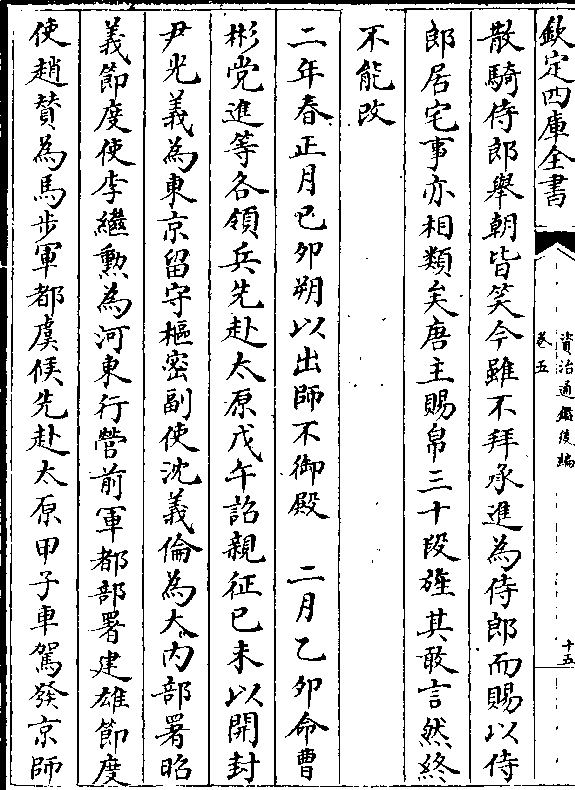 欽定四庫全書
資治通鑑後編
卷五
十五
散騎侍郎舉朝皆笑今雖不拜承進為侍郎而賜以侍
郎居宅事亦相類矣唐主賜帛三十段旌其敢言然終
不能改
二年春正月己卯朔以出師不御殿　二月乙卯命曹
彬党進等各領兵先赴太原戊午詔親征已未以開封
尹光義為東京留守樞密副使沈義倫為大內部署昭
義節度使李繼勲為河東行營前軍都部署建雄節度
使趙賛為馬步軍都虞候先赴太原甲子車駕發京師